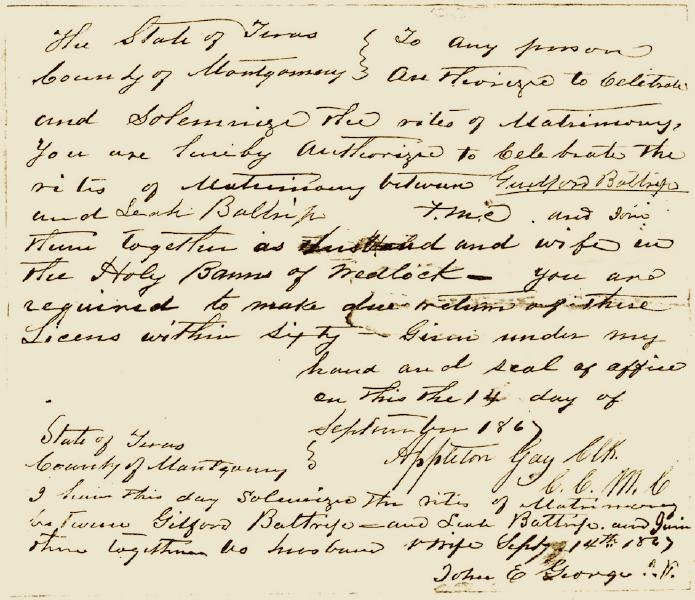 The State of Texas } To any person
County of Montgomery } Authorize to Celebrate
and Solemnize the rites of Matrimony,
You are heirby Authorize to Celebrate the
rites of Matrimony between Guilford Baltrip
and Leah Baltrip F.M.C. and Join
them together as Husband and wife in
the Holy Banns of Wedlock – You are
required to make due return of these
Licens within Sixty – Given under my
hand and seal of office
on this the 14 day of
September 1867
Appleton Gay Clk.
C. C. M. C
State of Texas
County of Montgomery }
I have this day Solemnize the rites of Matrimony
between Gilford Baltrip – and Leah Baltrip. and Join
them together as husband & wife Sept 14th 1867
John E George